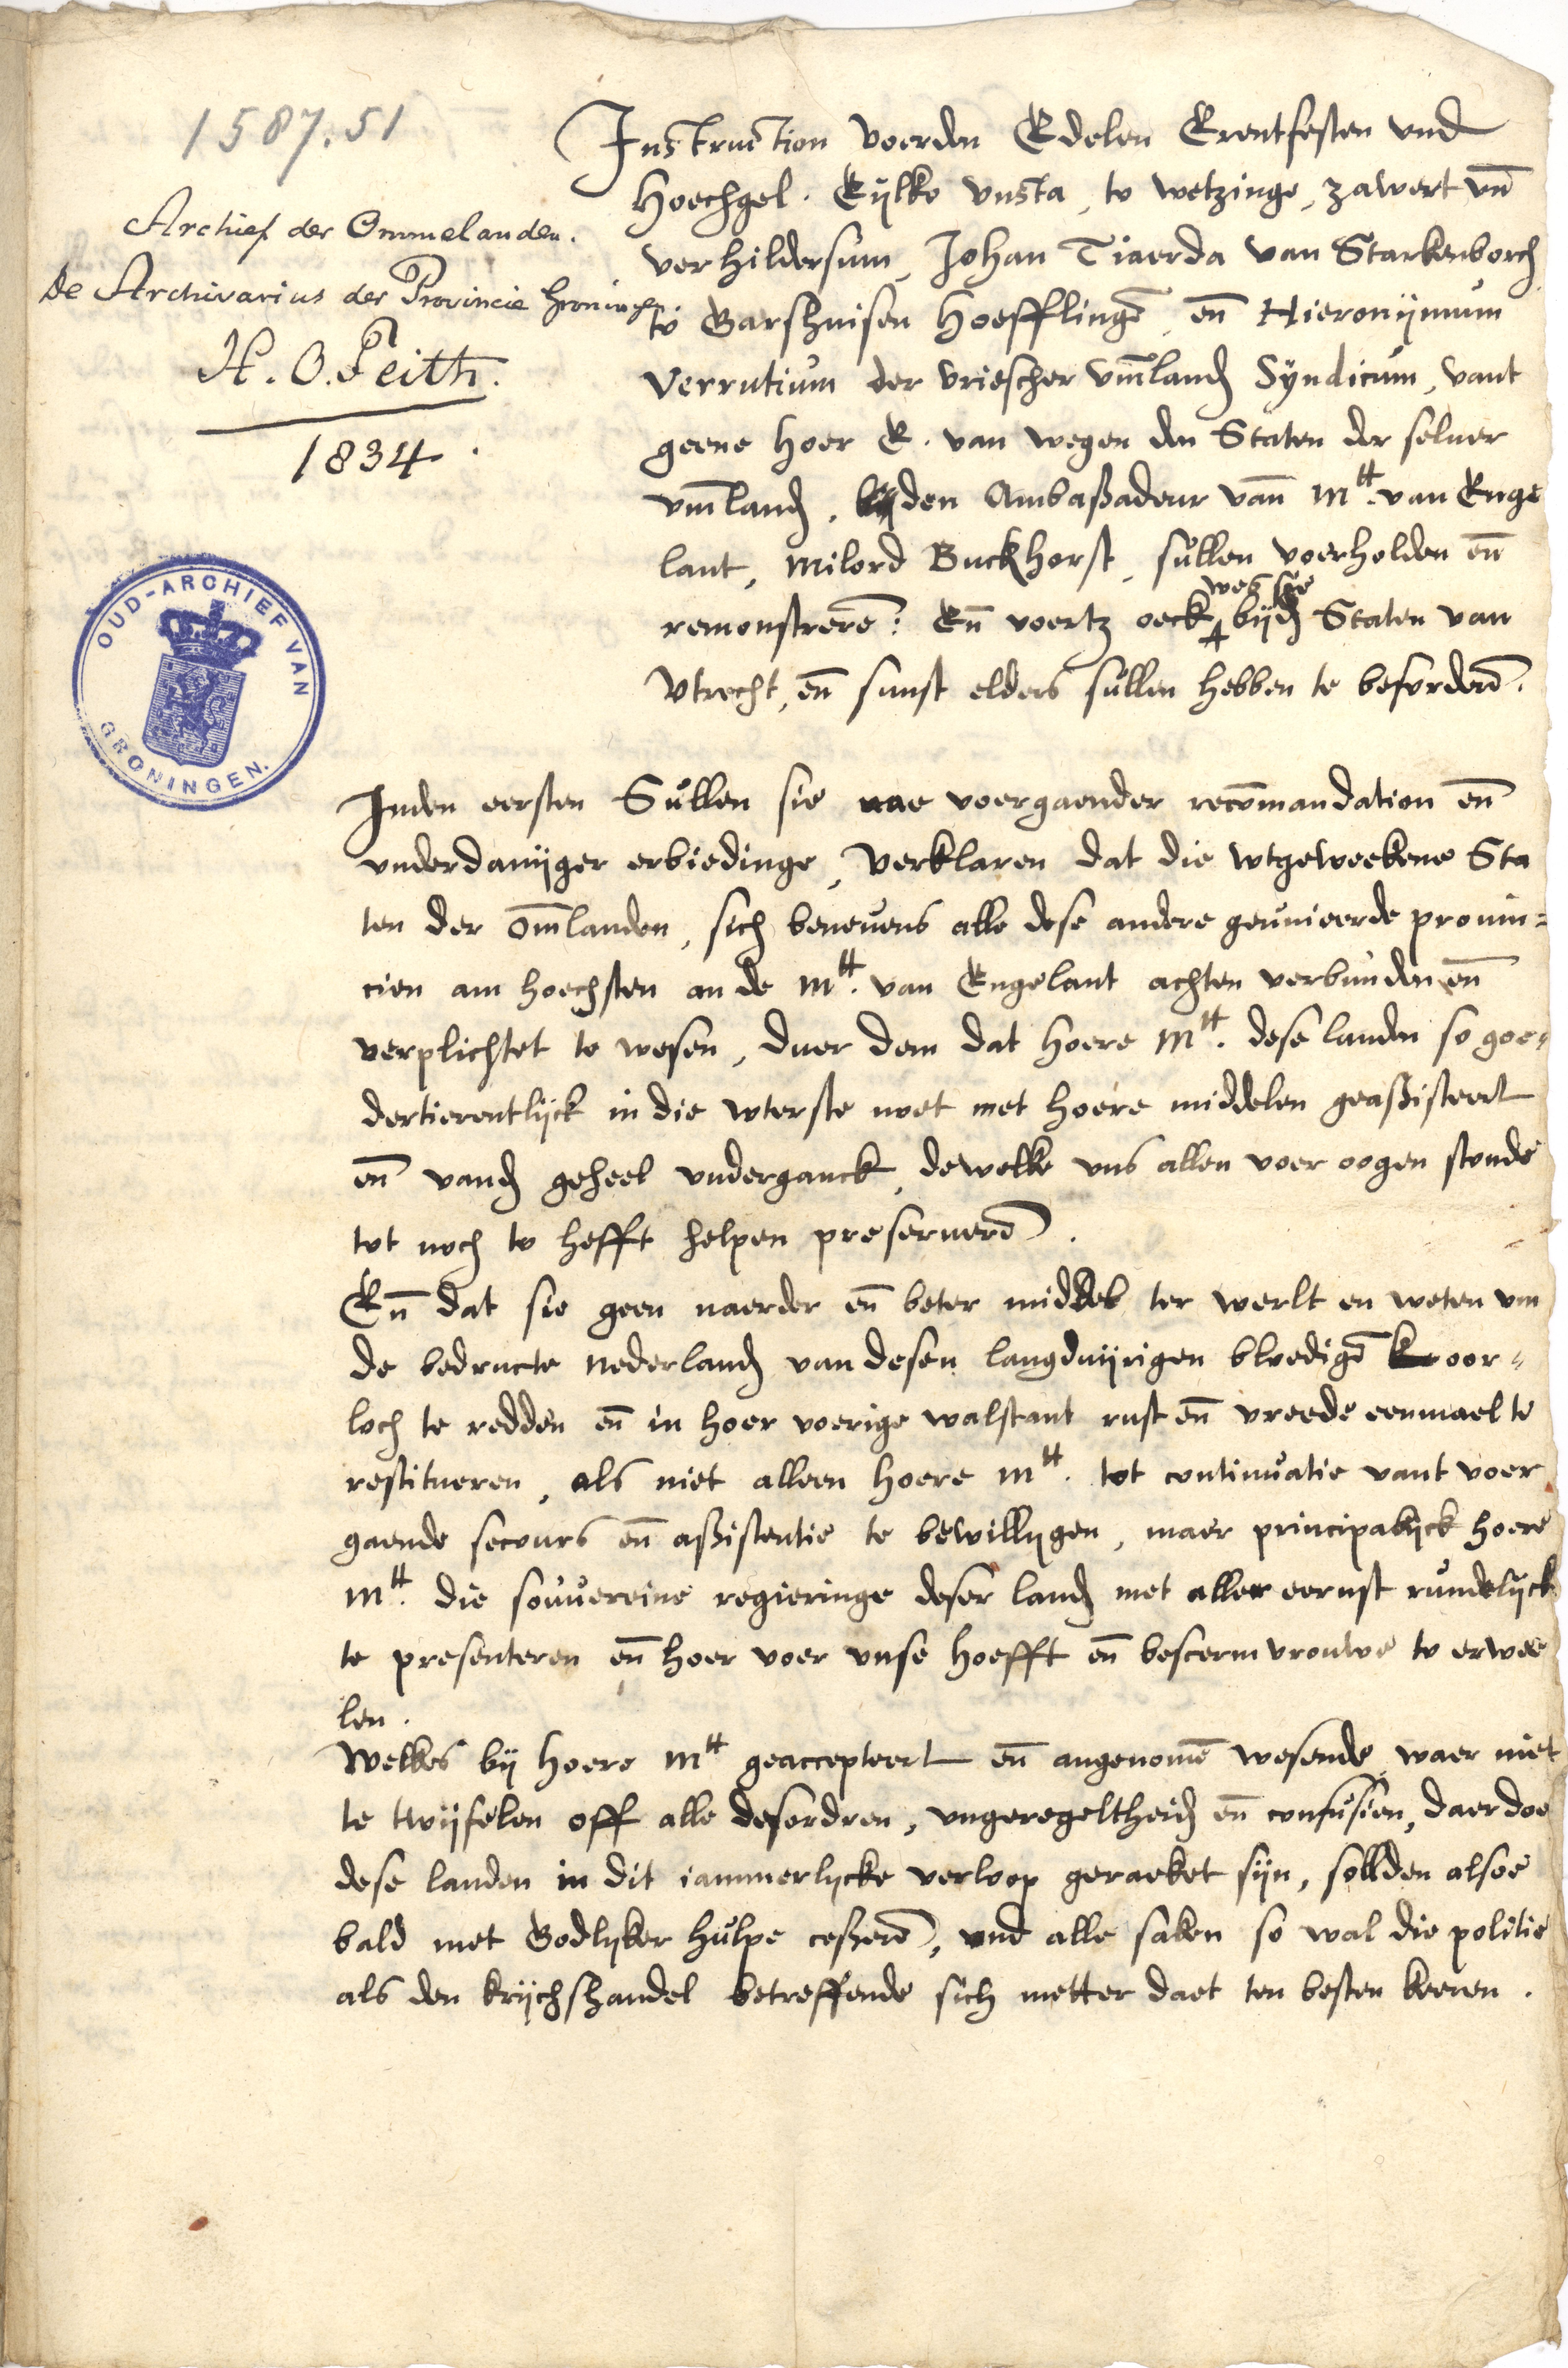 1587.51
Archief der Ommelanden.
De Archivarius der Provincie Groningen
H. O. Feith.
1834.
OUD-ARCHIEF VAN
GRONINGEN.
Instruction voerden Edelen Erentfesten vnd
Hoechgel. Eijlko Onsta, to wetzinge, zawert vn̄
verhildersum, Johan Tiaerda van Starkenborch
to Garshuisen Hoefflingē, en̄ Hieronijmum
Verrutium der vriescher vm̄land Syndicum, vant
geene hoer E. van wegen den Staten der seluer
vm̄land, bij den Ambaßadeur van̄ Mtt. van Enge
lant, Milord Buckhorst, sullen voerholden en̄
wes sie
remonstrerē: En̄ voertz oeck bijd Staten van
Vtrecht, en̄ sunst elders sullen hebben te beforderē.
Inden eersten Sullen sie nae voergaender recōmandation en̄
vnderdanijger erbiedinge, verklaren dat die wtgeweekene Sta
ten der om̄landen, sich beneuens alle dese andere geunieerde prouin=
cien am hoechsten an de Mtt. van Engelant achten verbunden en̄
verplichtet to wesen, duer dem dat hoere Mtt. dese landen so goe=
dertierentlijck in die wterste noet met hoere middelen geaßisteert
en̄ vand geheel vnderganck, dewelke vns allen voer oogen stonde
tot noch to hefft helpen preseruerē.
En̄ dat sie geen naerder en̄ beter middel ter werlt en weten vm
de bedructe nederland van desen langduijrigen bloedigē oor=
loch te redden en̄ in hoer voerige walstant rust en̄ vreede eenmael te
restitueren, als niet alleen hoere Mtt. tot continuatie vant voer
gaende secours en̄ aßistentie te bewillygen, maer principalijck hoere
Mtt. die souuereine regieringe deser land met aller eernst rundelijck
te presenteren en̄ hoer voer vnse hoefft en̄ bescerm vrouwe to erwee
len.
Welkes bij hoere Mtt geaccepteert en̄ angenomē wesende waer niet
te twijfelen off alle desordren, vngeregeltheid en̄ confusien, daer doe
dese landen in dit iammerlycke verloop geraeket sijn, sollden alsoe
bald met Godlyker hulpe ceßerē, vnd alle saken so wal die politie
als den krijchshandel betreffende sich metter daet ten besten keeren.